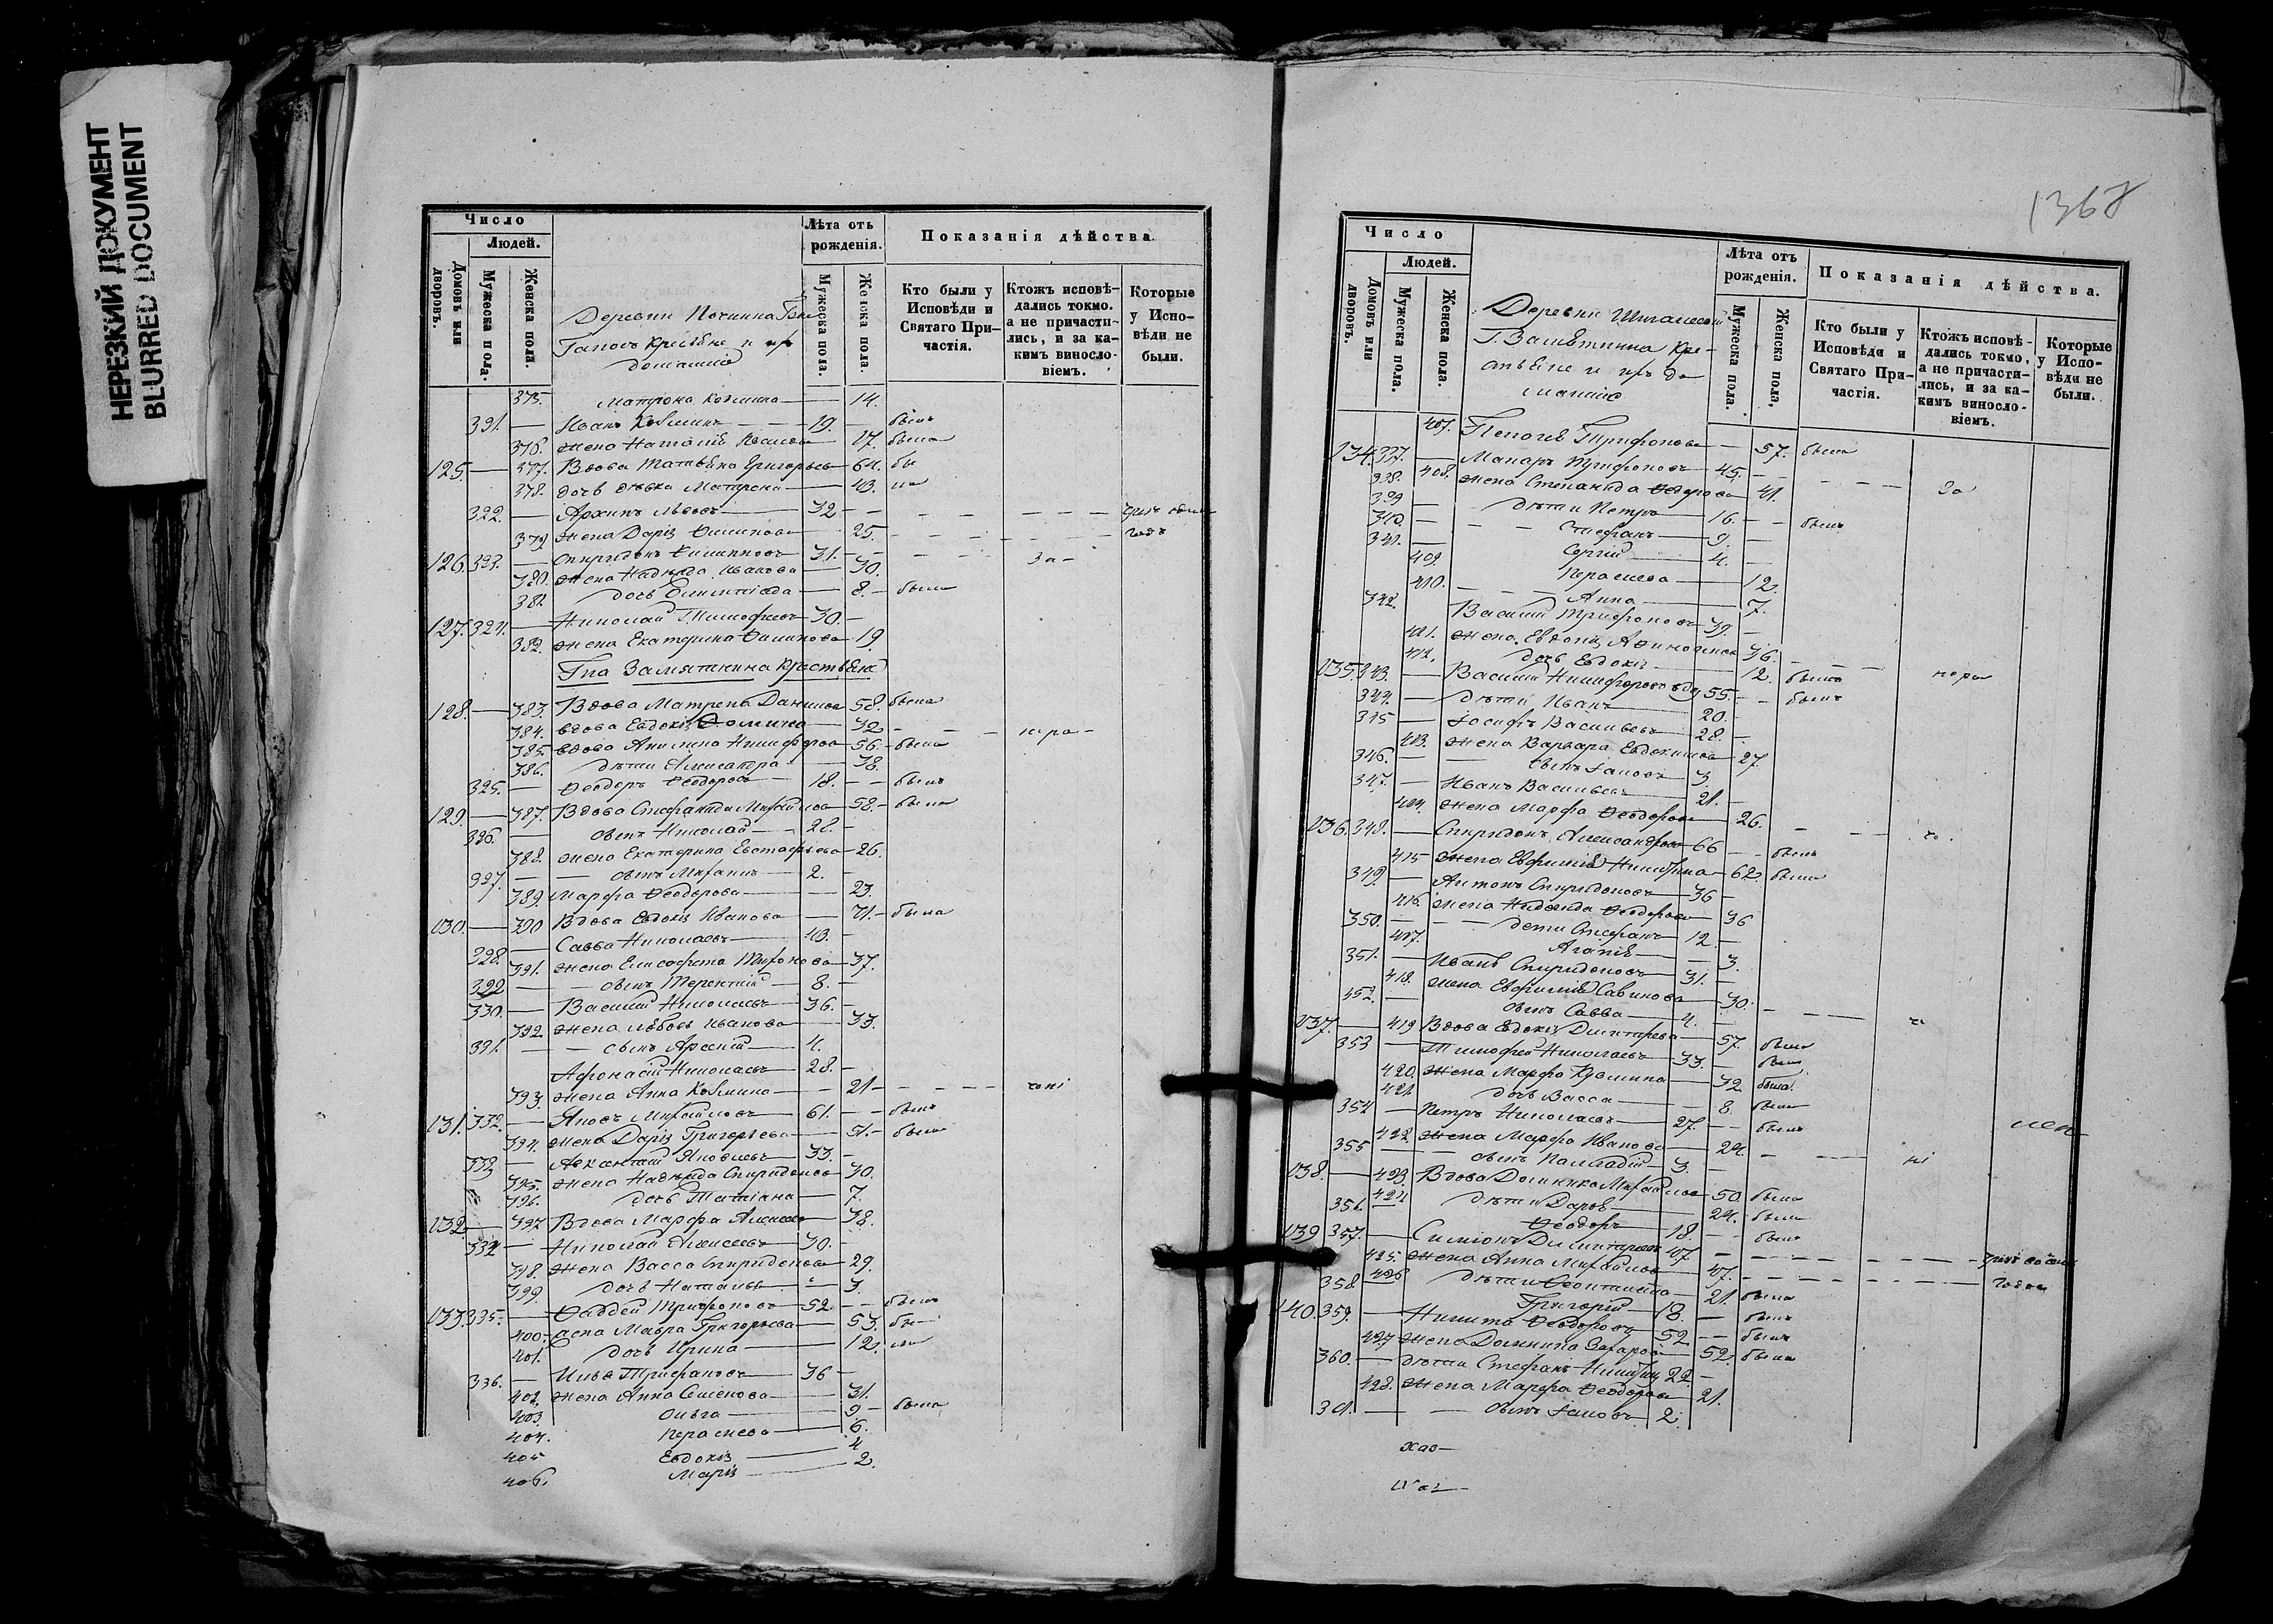 НЕРЕЗКИЙ ДОКУМЕНТ
BLURRED DOCUMENT
Число
Людей.
Домовъ или дворовъ.
Мужеска пола.
Женска пола.
Лѣта отъ рожденія.
Мужеска пола.
Женска пола.
Показанія дѣйства.
Кто были у Исповѣди и Святаго При-
частія.
Ктожъ исповѣ-
дались токмо.
а не причасти-
лись, и за ка-
кимъ винослo-
віемъ.
Которые
у Испо-
вѣди не
были.
Деревни
375. Матрона Козмина — 14.
391. — Иванъ Козминъ — 19. — былъ
376. жена Наталія Иванова 17. была
125. — 377. Вдова Татьяна Григорьева 64. бы
378. дочь дѣвка Матрона — 43. ла
322. — Архипъ Львовъ — 32 —
379. жена Дарія Филипова — 25.
126. 323. — Спиридонъ Филиповъ 31. — за —
380. жена Надежда Иванова — 30.
381. дочь Олимпіада — 8. — была
127. 324. — Николай Тимофеевъ 30. —
382. жена Екатерина Филипова 19.
Гна Замяткина крестьяне
128. — 383. Вдова Матрена Данилова 58. была
384. вдова Евдокія Фомина 32 —
385. вдова Акилина Никифорова 56. — была
386. дѣти Александра — 18.
325. — Феодоръ Феодоровъ — 18. — былъ
129. — 387. Вдова Стефанида Михайлова 58. — была
326. — сынъ Николай — 28. —
388. жена Екатерина Евстафьева 26.
327. — сынъ Михаилъ — 2. —
389. Марфа Феодорова — 23
130. — 390 Вдова Евдокія Иванова — 71. — была
328. — Савва Николаевъ — 43. —
391. жена Елисавета Тихонова — 37.
329 — сынъ Терентій — 8. —
330. — Василій Николаевъ — 36. —
392. жена Любовь Иванова — 33.
331. — сынъ Арсеній — 4.
Афонасій Николаевъ — 28. —
393. жена Анна Козмина — 21 —
131. 332. — Яковъ Михайловъ — 61. — былъ
394. жена Дарія Григорьева — 51. — была
333 — Авксентій Яковлевъ — 33. —
395. жена Надежда Спиридонова 30.
396. дочь Татіана — 7.
132. — 397 Вдова Марфа Алексеева 38.
334 — Николай Алексеевъ — 30. —
398. жена Васса Спиридонова — 29.
399. дочь Наталья — 3.
133. 335. — Фаддей Трифоновъ — 52 — былъ
400. жена Мавра Григорьева — 53. бы —
401. дочь Ирина — 12. ла
336. — Илья Трифоновъ — 36 —
402. жена Анна Семенова — 31.
403. Ольга — 9 — была
404. Параскева — 6.
405 Евдокія — 4
406. Марія — 2.
1368
Число
Людей.
Домовъ или дворовъ.
Мужеска пола.
Женска пола.
Лѣта отъ
рожденія.
Мужеска пола.
Женска пола.
Показанія дѣйства.
Кто были у
Исповѣди и
Святаго При-
частія.
Ктожъ исповѣ-
дались токмо,
а не причасти-
лись, и за ка-
кимъ винослo-
віемъ.
Которые
у Испо-
вѣди не
были.
Деревни
Г. Замяткина кре-
407. Пелагея Трифонова — 57. была
134. 337. — Макаръ Трифоновъ — 45. —
408. жена Степанида Феодорова 41. — за
338. — дѣти Петръ — 16. — былъ
339 — Стефанъ — 9. —
340. 341. — Сергій — 4. —
409. Параскева — 12.
410. Анна — 7.
342. Василій Трифоновъ 39. —
411. жена Евдокія 36.
412. дочь Евдокія — 12. была
135. 343. — Василій Никифоровъ вдов 55. — былъ
344. — дѣти Иванъ — 20. —
345 — Іосифъ Васильевъ — 28. —
413. жена Варвара Евдокимова — 27.
346. — сынъ Іаковъ 3.
347. — Иванъ Васильевъ — 21. —
414. жена Марфа Феодорова — 26.
136. 348. — Спиридонъ Александровъ 66 — былъ
415 жена Евфимія Никитина — 62. была
349. — Антонъ Спиридоновъ — 36 —
416. жена Надежда Феодорова — 36
350. — дети Стефанъ — 12. —
417. Агапія — 3.
351. — Иванъ Спиридоновъ — 31. —
418. жена Евфимія Савинова — 30.
352. — сынъ Савва — 4. —
137. — 419 Вдова Евдокія Димитріева — 57. была
353 — Тимофей Николаевъ — 33. — былъ
420. жена Марфа Кузмина — 32. была
421 дочь Васса — 8. была
354 — Петръ Николаевъ — 27. — былъ
422. жена Марфа Иванова — 24.
355 — сынъ Палладій — 3. —
138. — 423. Вдова Домника Михайлова 50. была
424 дѣти Дарья — 24. была
356. Феодоръ — 18. — былъ
139 357. — Симіонъ Димитріевъ 47 —
425. жена Анна Михайлова — 47. —
426 дѣти — 21. была
358 Григорій — 18. — былъ
140. 359. — Никита Феодоровъ 52 — былъ
427 жена Домникія Захарова — 52. была
360. — дѣти Стефанъ Никитинъ 22 —
428. жена Марфа Феодорова — 21.
361. — сынъ Іаковъ — 2.